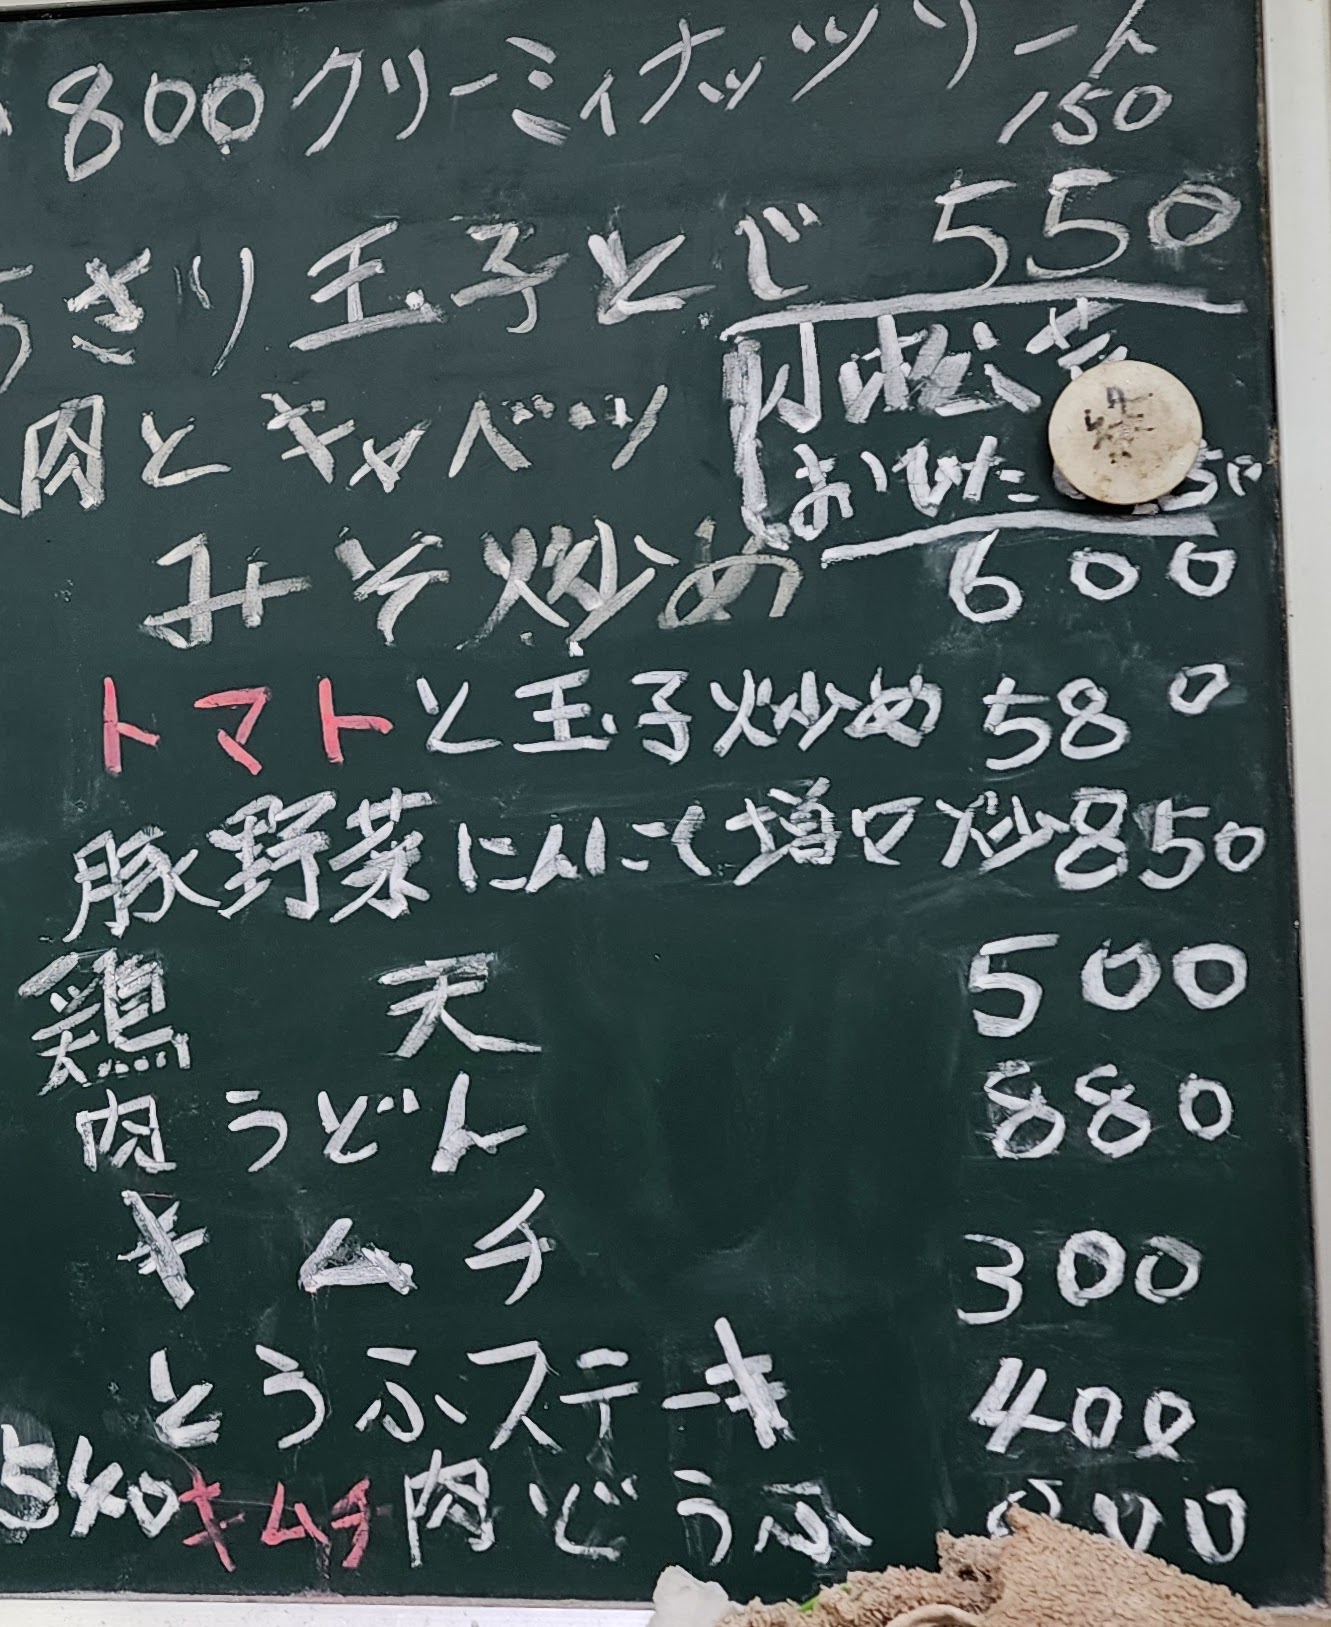 800 クリーミィナッツソース
150
あさり玉子とじ 550
小松菜
肉とキャベツ
おひた 50
みそ炒め 600
トマトと玉子炒め 580
豚野菜にんにく塩口炒 850
鶏天 500
肉うどん 880
キムチ 300
とうふステーキ 400
540 キムチ肉どうふ